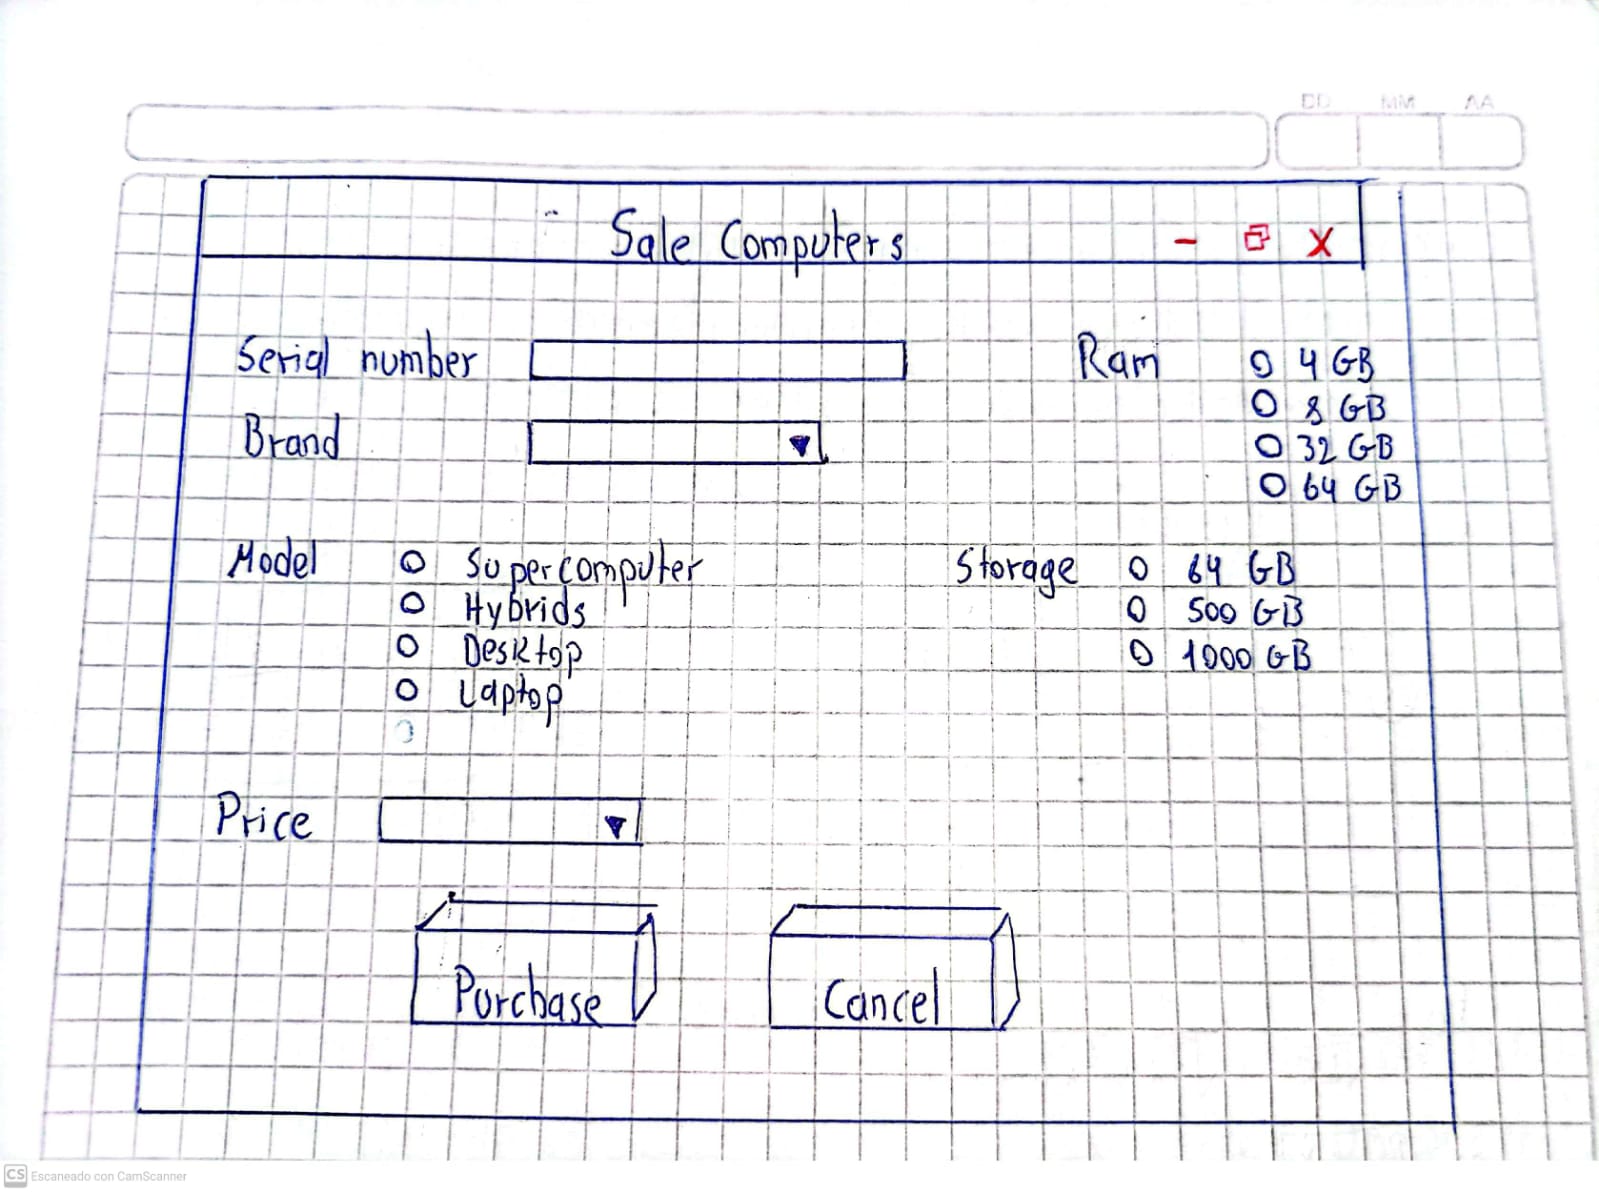 DD MM AA
Sale Computers - X
Serial number
Ram 4 GB
8 GB
Brand
32 GB
64 GB
Model Supercomputer
Hybrids
Desktop
Laptop
Storage 64 GB
500 GB
1000 GB
Price
Purchase
Cancel
CS Escaneado con CamScanner